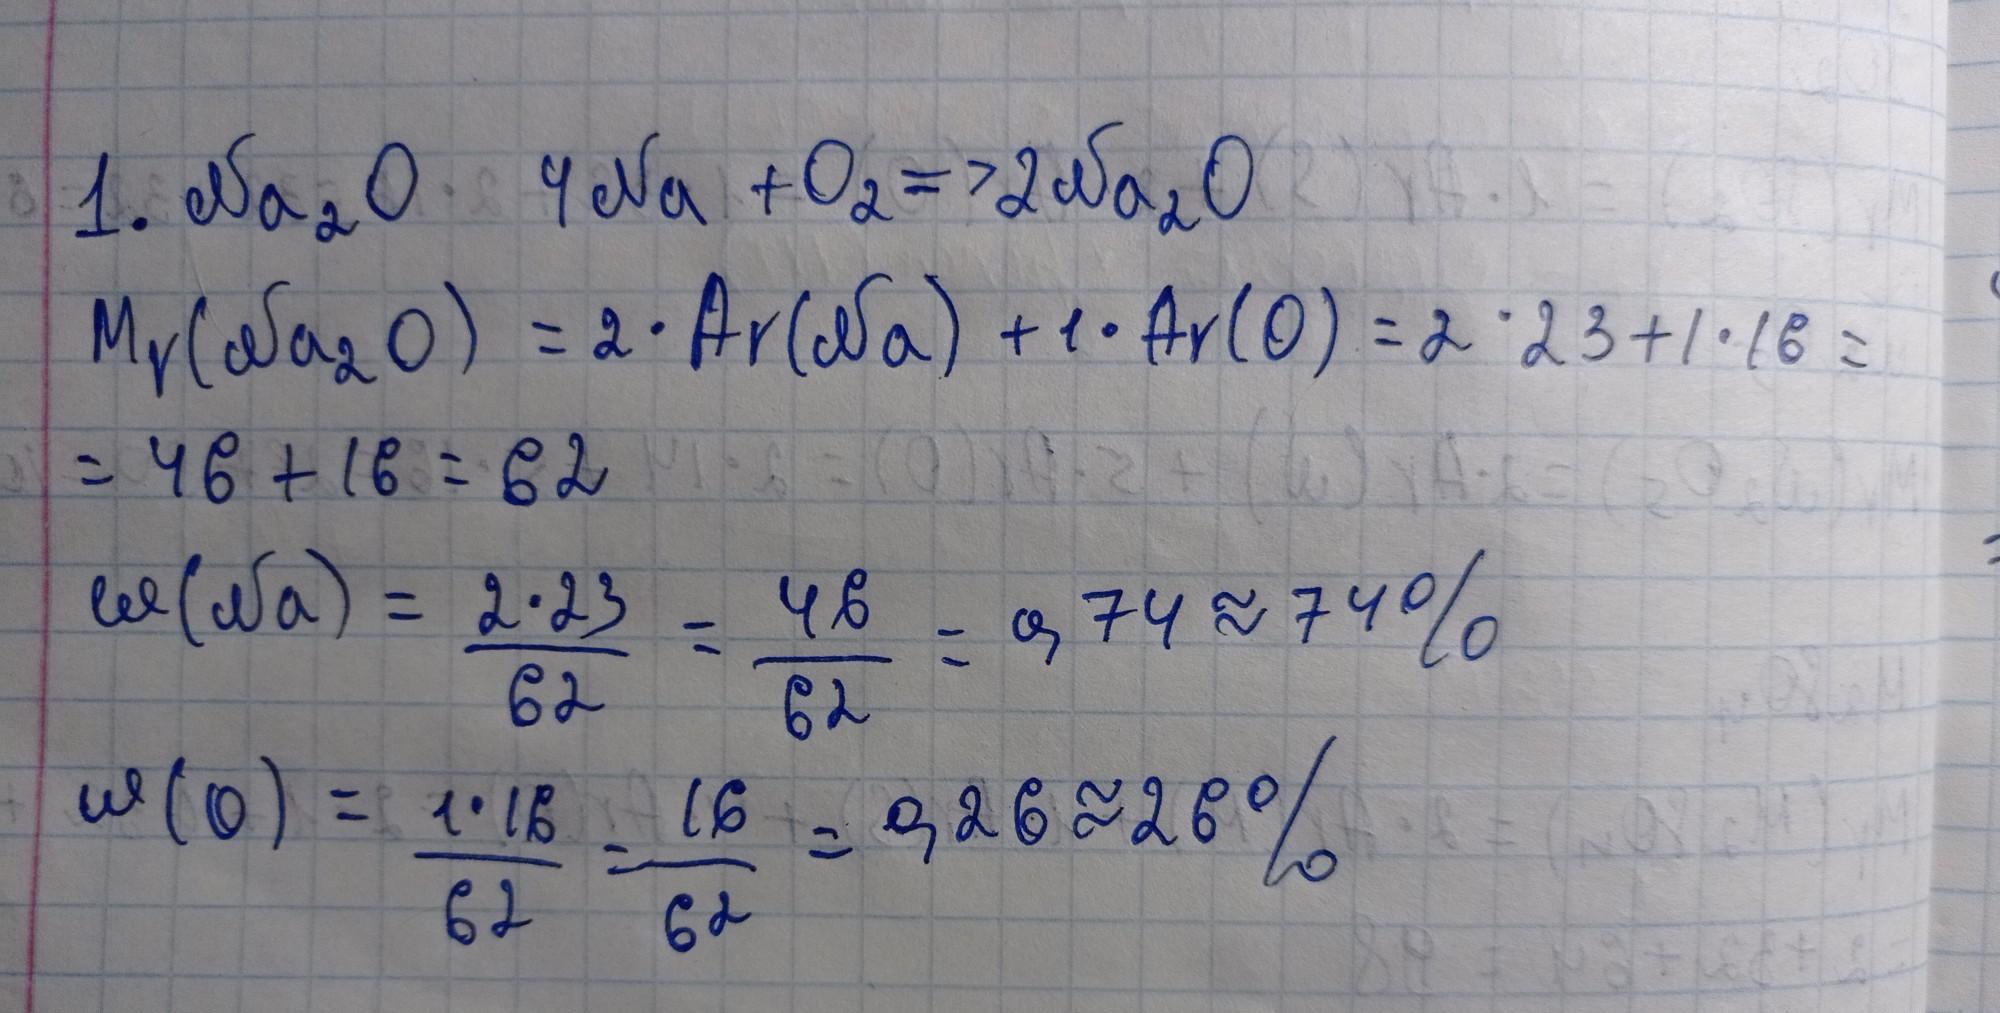 1. Na₂O 4Na + O₂ => 2Na₂O
Mr(Na₂O) = 2 · Ar(Na) + 1 · Ar(O) = 2 · 23 + 1 · 16 =
= 46 + 16 = 62
w(Na) = 2·23/62 = 46/62 = 0,74 ≈ 74%
w(O) = 1·16/62 = 16/62 = 0,26 ≈ 26%